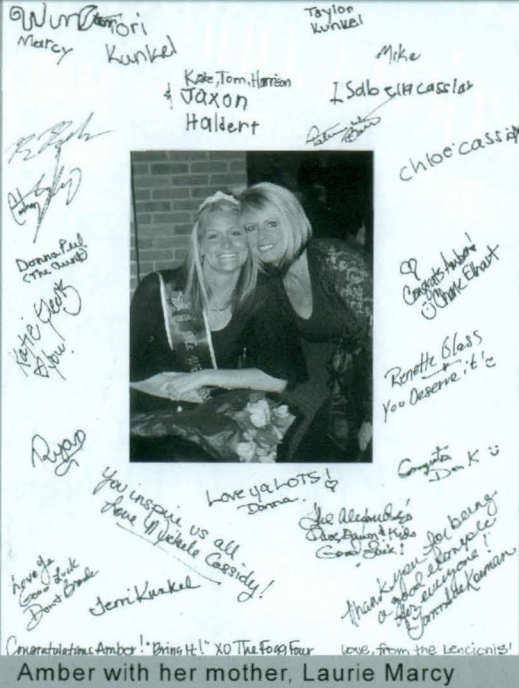 Tori
Marcy
Kunkel
Taylor
Kunkel
Mike
Kate, Tom, Harrison
& Jaxon
Haldert
Isabella Cassidy
Chloe Cassidy
Donna Peil
(The Aunt)
Congrats Amber!
Renette Glass
You Deserve it!
Katie
You!
Ryan
Congrats
Don K
Love ya LOTS!
Donna
You inspire us all
Love Michele Cassidy!
The Alexander's
Good Luck!
Thank you for being
a good example
for everyone!
Love Ya
Good Luck
Terri Kunkel
Congratulations Amber! "Bring It!" XO The Fogg Four
Love, from the Lencionis'
Amber with her mother, Laurie Marcy